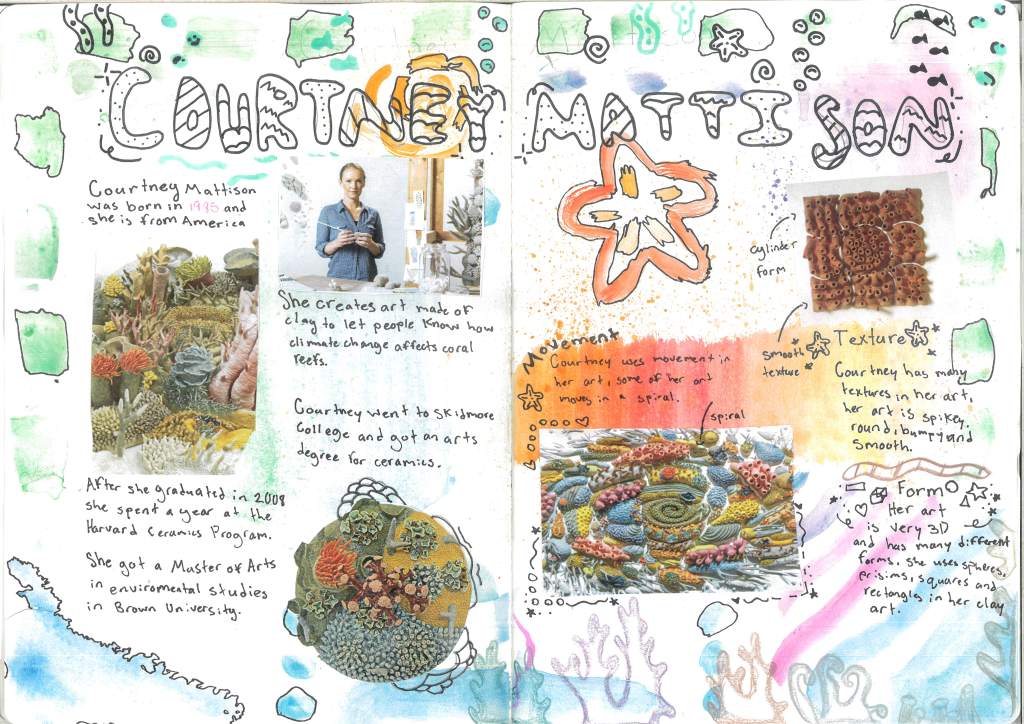 COURTNEY MATTISON
Courtney Mattison
was born in 1985 and
she is from America
She creates art made of
clay to let people know how
climate change affects coral
reefs.
Courtney went to Skidmore
College and got an arts
degree for ceramics.
After she graduated in 2008
she spent a year at the
Harvard Ceramics Program.
She got a Master of Arts
in enviromental studies
in Brown University.
cylinder
form
smooth
texture
Movement
Courtney uses movement in
her art, some of her art
moves in a spiral.
spiral
Texture
Courtney has many
textures in her art,
her art is spikey,
round, bumpy and
smooth.
Form
Her art
is very 3D
and has many different
forms. She uses spheres,
prisims, squares and
rectangles in her clay
art.